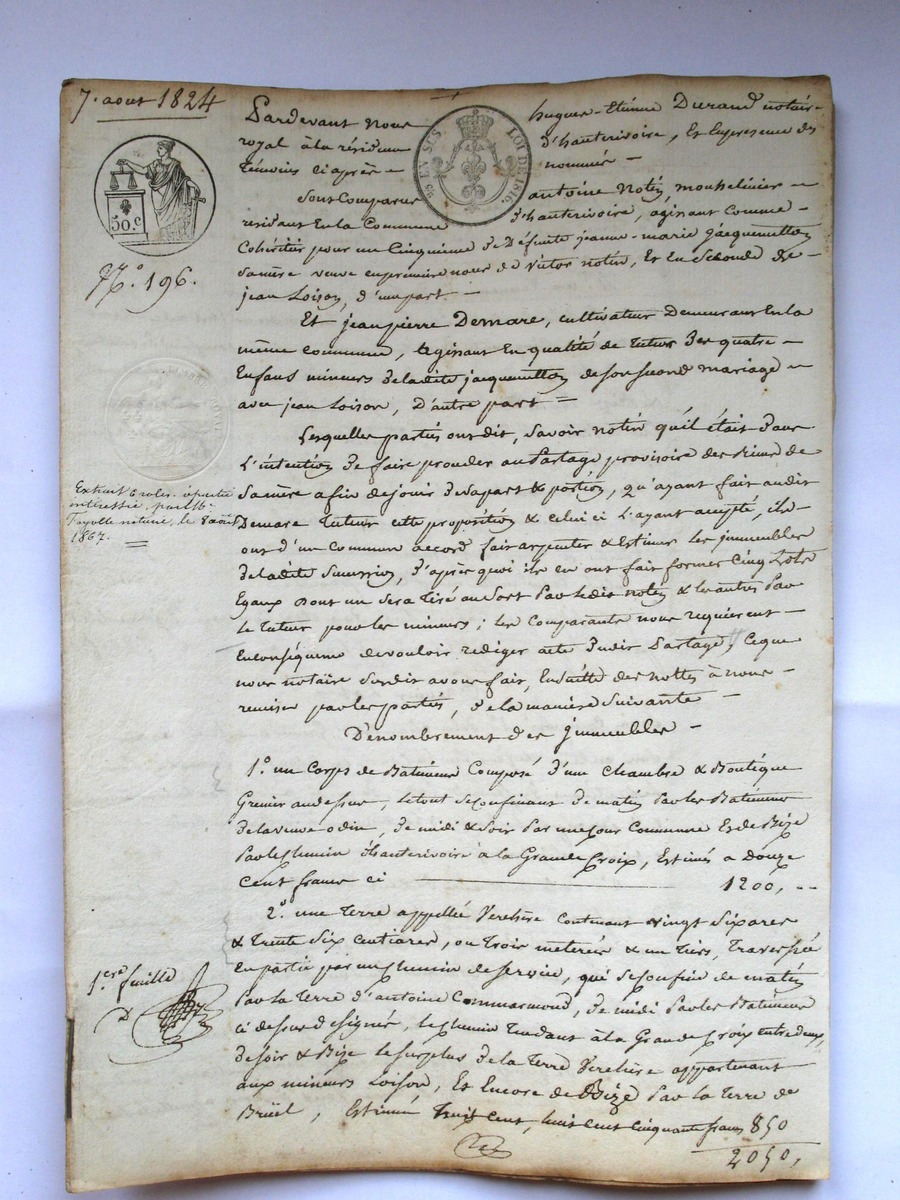 7. aout 1824
50.c
N.o 196.
25 EN SUS
LOI DE 1816.
Pardevant nous hugues-Etienne Durand notaire
royal à la résidence d'hauterivoire, Et En presence des
témoins ci après nommés
Sont Comparus antoine notin, mousselinier
residant En la Commune d'hauterivoire, agissant Comme
Cohéritier pour un Cinquieme de Défunte jeanne-marie jacquemetton
Sa mère veuve en première noces de Victor notin, Et En Seconde de
jean Loison, d'une part.
Et jean pierre Demare, cultivateur Demeurant En la
même commune, agissant En qualité de tuteur des quatre
Enfans mineurs de ladite jacquemetton de son second mariage
avec jean Loison, D'autre part =
Lesquelles parties ont dit, Savoir notin qu'il était dans
L'intention de faire proceder au Partage provisoire des Biens de
Sa mère afin de jouir de sa part & portion, qu'ayant fait audit
Demare tuteur cette proposition & celui ci L'ayant accepté, ils
ont d'un Commun accord fait arpenter & Estimer les immeubles
de ladite Succession, d'après quoi ils en ont fait former Cinq Lots
Egaux dont un sera tiré au Sort Par ledit notin & les autres Par
le tuteur pour les mineurs ; les Comparants nous requierent
En conséquence de vouloir rediger acte dudit Partage, Ce que
nous notaire Susdit avons fait, Ensuitte des nottes à nous
remises par les parties, de la manière Suivante
Dénombrement des jmmeubles
1.o un Corps de Batiment Composé d'une chambre & Boutique
Grenier au dessus, le tout Se Confinant de matin Par les Batimens
de la veuve odin, de midi & Soir Par une Cour Commune Et de Bize
Par le Chemin d'hauterivoire à la Grande Croix, Estimés a Douze
Cent francs ci 1200,
2.o une terre appellée Verchère Contenant vingt Six ares
& trente Six centiares, ou trois meterées & un tiers, Traversée
en partie par un Chemin de Service, qui Se Confine de matin
Par la terre d'antoine Commarmond, de midi Par les Batimens
ci dessus designés, le Chemin tendant à la Grande Croix entre deux,
de soir & Bize le Surplus de la terre Verchère appartenant
aux mineurs Loison, Et Encore de Bize Par la terre de
Bruel, Estimée huit cent cinquante francs 850
2050,
Extrait 6 roles à partie
intéressée, par M.
Fayolle notaire, le 8 août
1867.
1.ere feuille